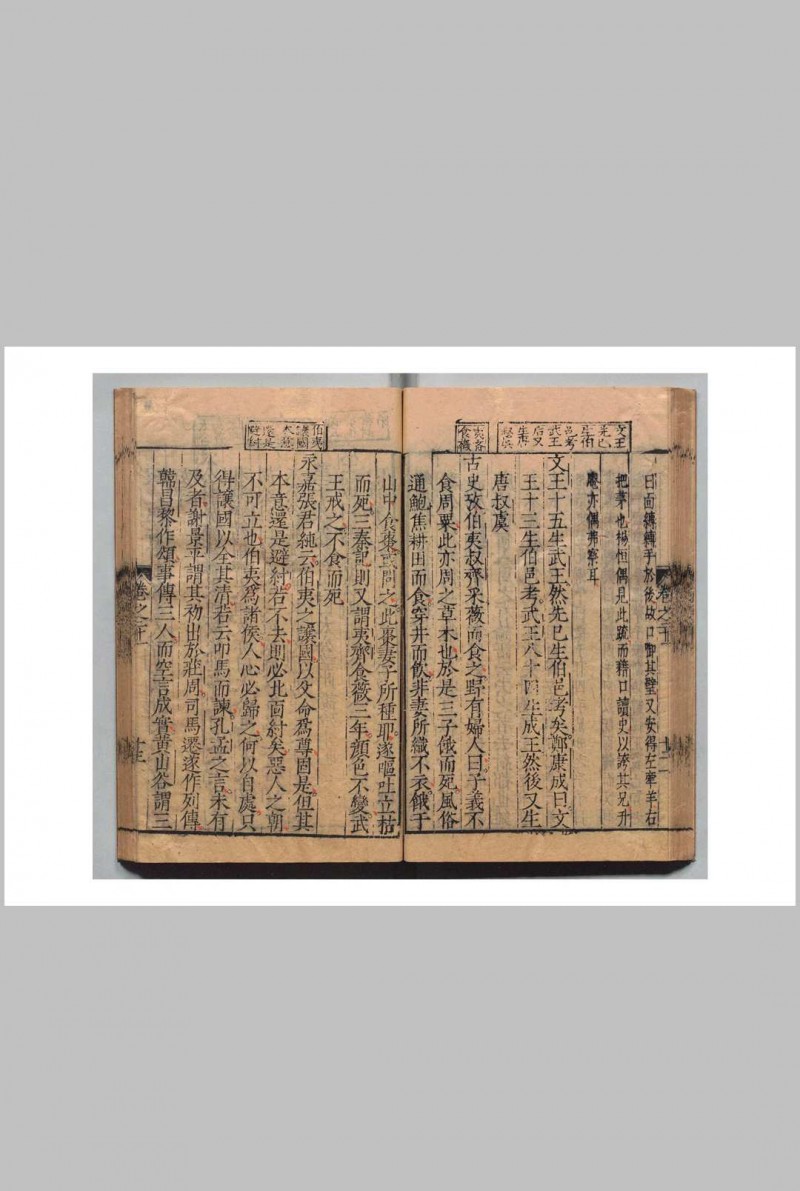 曰面縛縛手於後故口啣其璧又安得左牽羊右
把茅也楊恒偶見此疏而藉口讀史以誇其兄升
菴亦偶弗察耳
文王
先已
生伯
邑考
武王
文王十五生武王然先已生伯邑考矣鄭康成曰文
王十三生伯邑考武王八十四生成王然後又生
唐叔虞
夷齊
食薇
古史攷伯夷叔齊采薇而食之野有婦人曰子義不
食周粟此亦周之草木也於是三子餓而死風俗
通鮑焦耕田而食穿井而飲非妻所織不衣餓于
山中食棗或問之此棗妻子所種耶遂嘔吐立枯
而死三秦記則又謂夷齊食薇三年顏色不變武
王戒之不食而死
伯夷
讓國
本意
還是
避紂
永嘉張君純云伯夷之讓國以父命爲尊固是但其
本意還是避紂若不去則必北面紂矣惡人之朝
不可立也伯夷爲諸侯人心必歸之何以自處只
得讓國以全其清若云叩馬而諫孔孟之言未有
及者謝景平謂其初出於莊周司馬遷遂作列傳
韓昌黎作頌事傳三人而空言成實黃山谷謂三
卷之十一
十二
卷之十一
十三